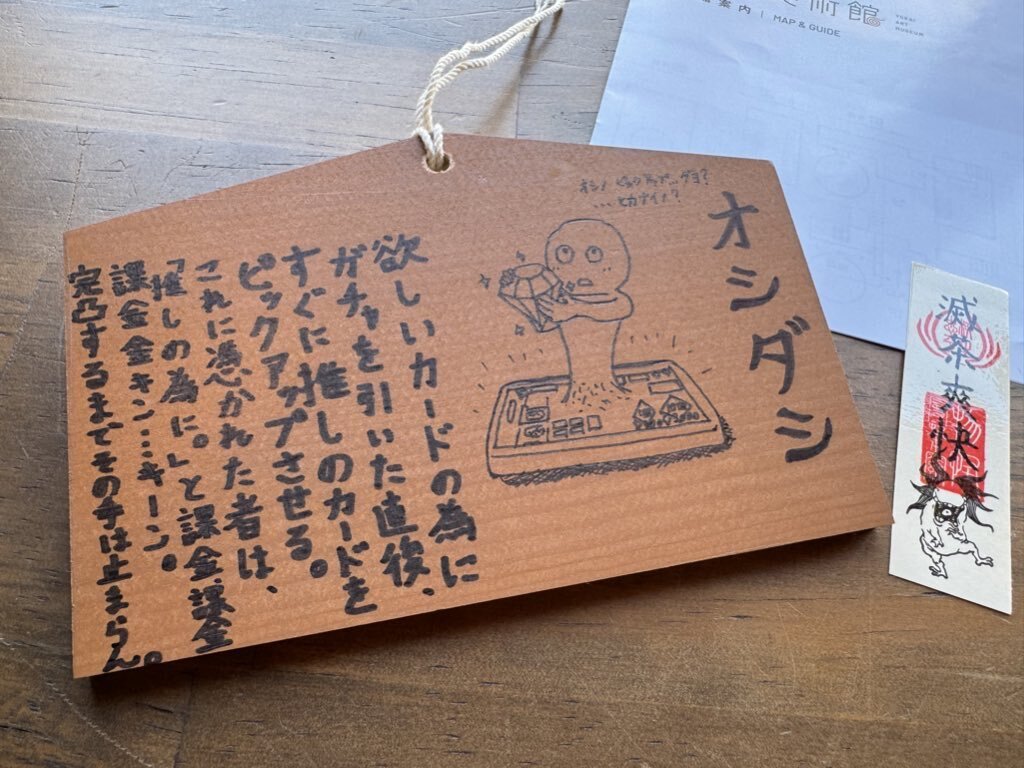 術館
YOKAI
ART
MUSEUM
案内 | MAP & GUIDE
オシダシ
オシノ ピックアップ…ダヨ?
…ヒカナイノ?
欲しいカードの為に、
ガチャを引いた直後、
すぐに推しのカードを
ピックアップさせる。
これに憑かれた者は、
「推しの為に。」と課金課金
課金金キン…キーン。
完凸するまでその手は止まらん。
滅茶爽快